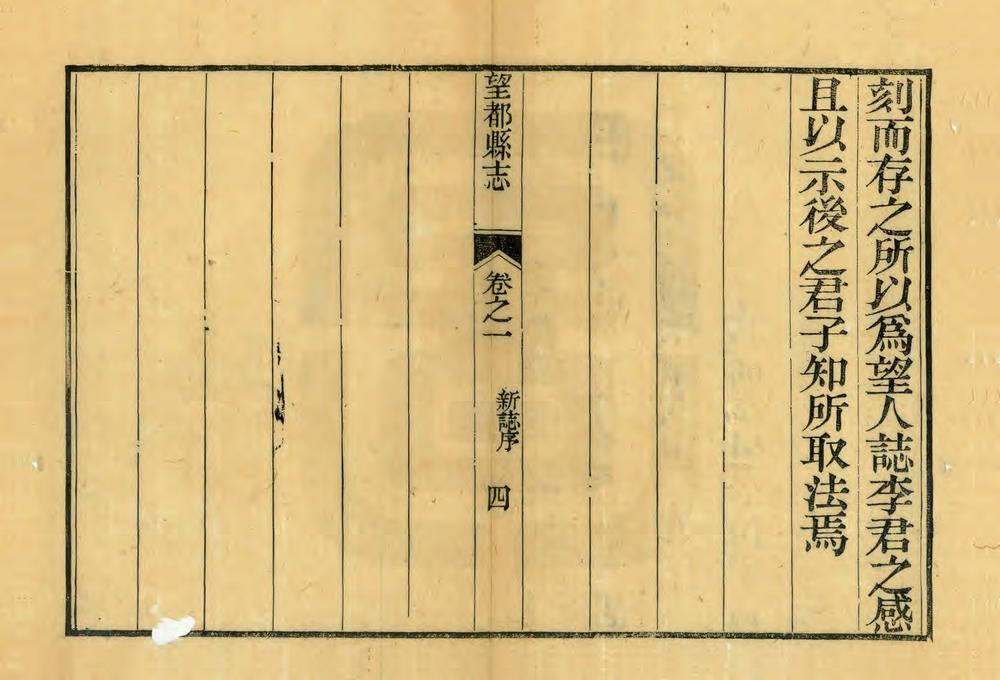 刻而存之所以爲望人誌李君之感
且以示後之君子知所取法焉
望都縣志
卷之一
新誌序
四